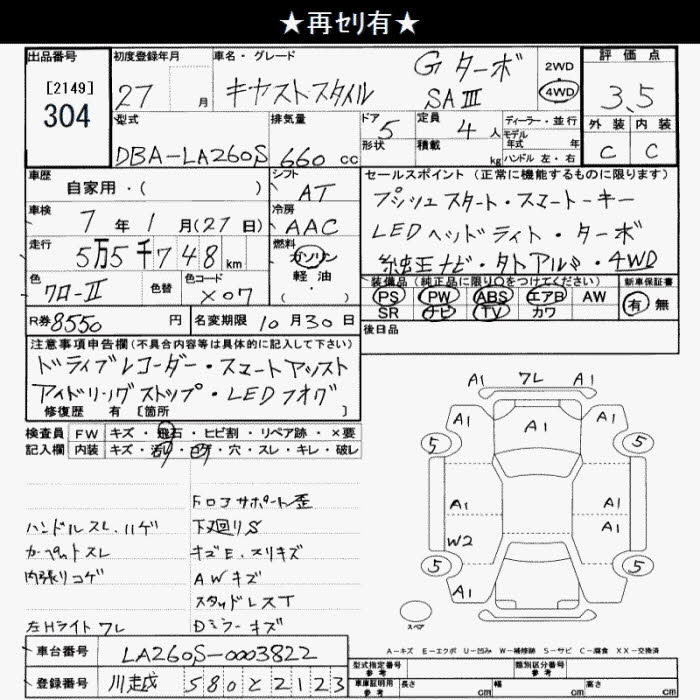 ★再セリ有★
出品番号
[2149]
304
初度登録年月
27 月
車名・グレード
キャストスタイル
Gターボ
SAIII
2WD
4WD
評価点
3.5
外装 内装
C C
型式
DBA-LA260S
排気量
660 cc
ドア
5
形状
定員
4 人
積載
kg
ディーラー・並行
モデル
年式 年
ハンドル 左・右
車歴
自家用・( )
車検
7 年 1 月(27 日)
走行
5万5千748 km
色
クロ-II
色替
色コード
X07
シフト
AT
冷房
AAC
燃料
ガソリン
軽油
( ・ )
セールスポイント(正常に機能するものに限ります)
プッシュスタート・スマートーキー
LEDヘッドライト・ターボ
純正ナビ・タトアルミ・4WD
装備品(純正品に限り○をつけてください)
PS PW ABS エアB AW
SR ナビ TV カワ
新車保証書
有 無
後日品
R券 8550 円
名変期限 10月30日
注意事項申告欄(不具合内容等は具体的に記入して下さい)
ドライブレコーダー・スマートアシスト
アイドリングストップ・LEDフオグ
修復歴 有 [箇所 ]
検査員
記入欄
FW キズ・飛石・ヒビ割・リペア跡・×要
内装 キズ・汚れ・コゲ・穴・スレ・キレ・破レ
ハンドルスレ、ハゲ
カーペットスレ
内張りコゲ
左Hライト ワレ
Fロアサポート歪
下廻りS
キズE、スリキズ
AWキズ
スタッドレスT
Dミラーキズ
A1 ワレ A1
A1 A1 A1
5 5
A1 A1
W2 A1
5 5
A1
スペア
A-キズ E-エクボ U-凹み W-補修跡 S-サビ C-腐食 XX-交換済
車台番号
LA260S-0003822
登録番号
川越 580 と 2123
型式指定番号
参考
類別区分番号
参考
車庫証明用
参考
長さ cm
幅 cm
高さ cm